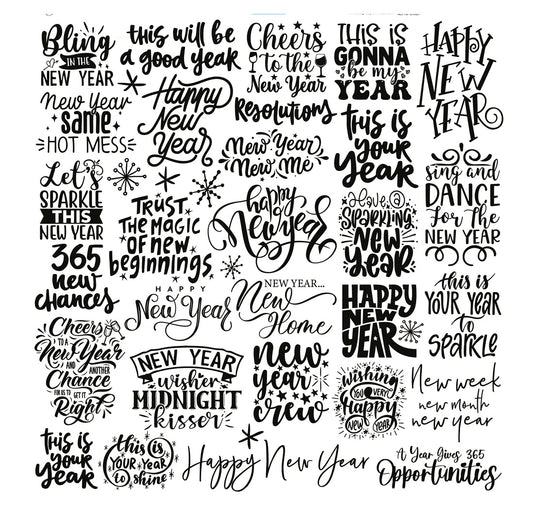 Bling
IN THE
NEW YEAR
this will be
a good year
Cheers
to the
New Year
Resolutions
THIS IS
GONNA
be my
YEAR
HAPPY
NEW
YEAR
New Year
same
HOT MESS
Happy
New
Year
New Year,
New Me
this is
your
year
Let's
SPARKLE
THIS
NEW YEAR
TRUST
THE MAGIC
OF NEW
beginnings
happy
New year
Have a
SPARKLING
New
Year
sing and
DANCE
For The
NEW YEAR
365
new
chances
HAPPY
New Year
NEW YEAR...
New
Home
HAPPY
NEW
YEAR
this is
YOUR YEAR
to
SPARKLE
Cheers
TO A
New Year
AND ANOTHER
Chance
FOR US TO GET IT
Right
NEW YEAR
wishes
MIDNIGHT
kisses
new
year
crew
wishing
YOU VERY
Happy
NEW YEAR
New week
new month
new year
this is
your
year
this is
YOUR YEAR
to shine
Happy New Year
A Year Gives 365
Opportunities